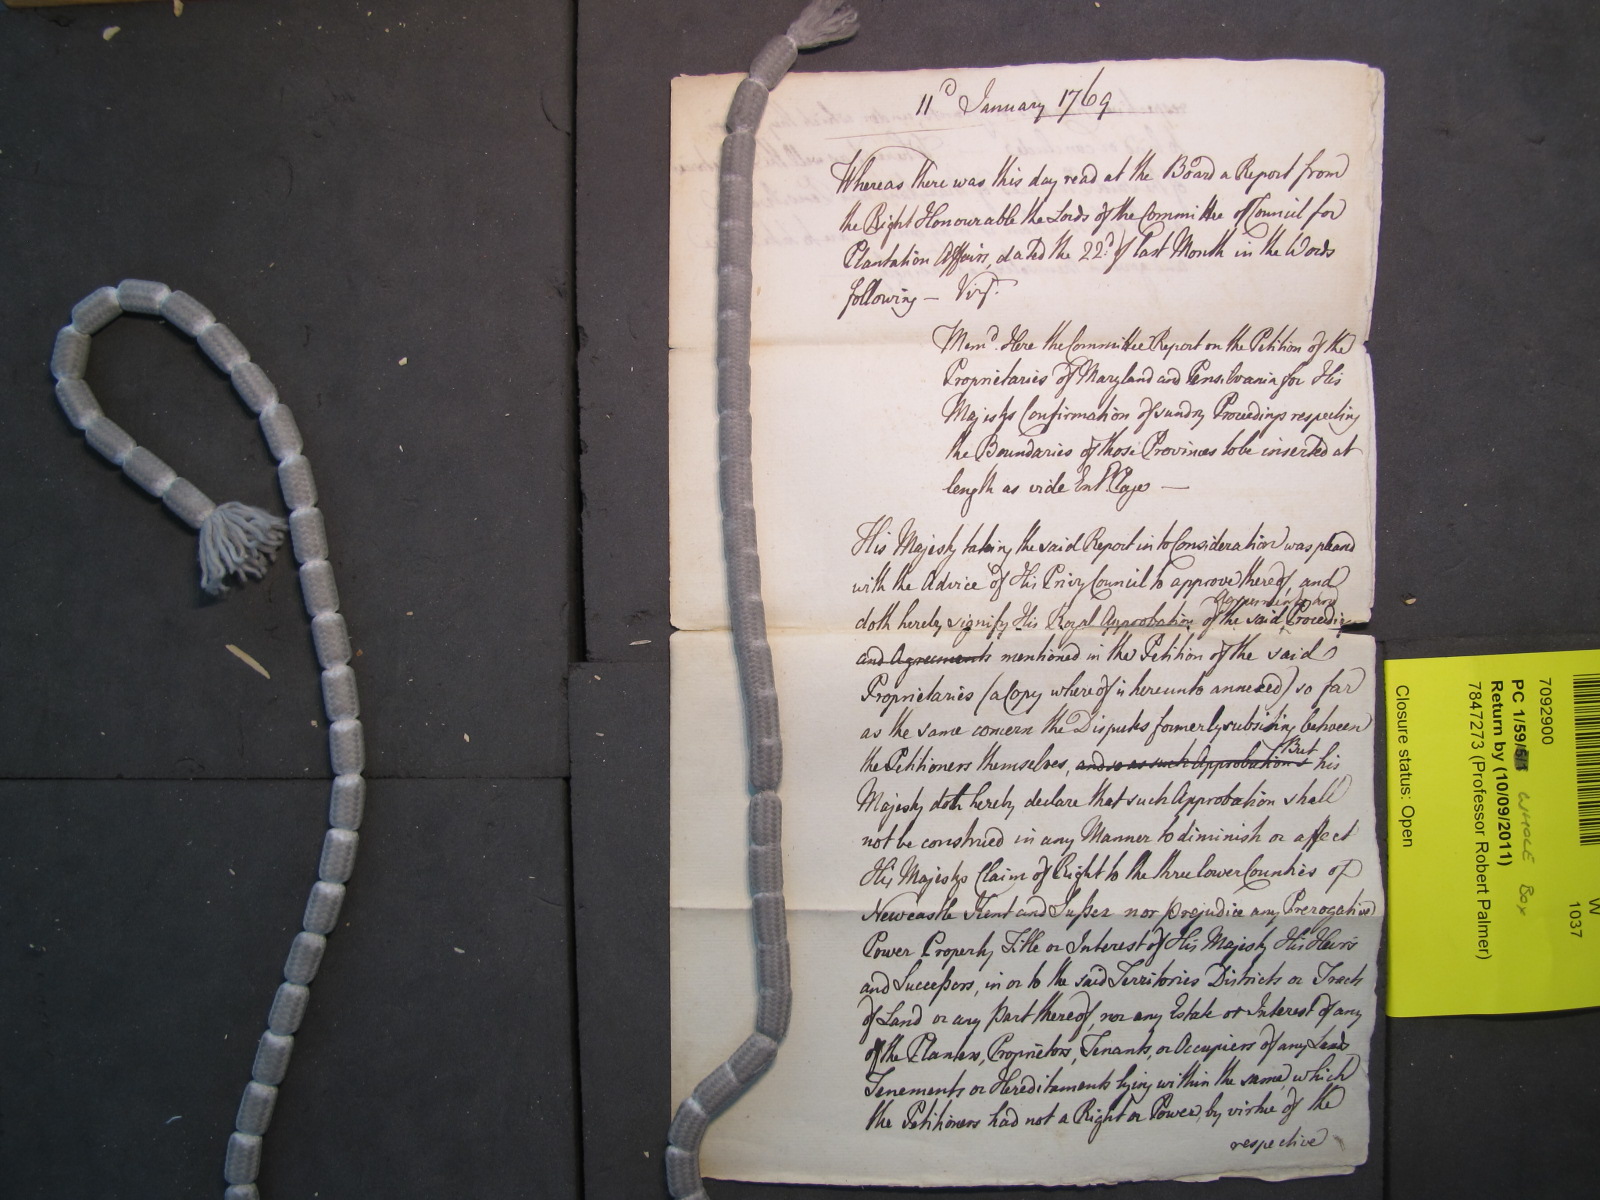 11th January 1769
Whereas there was this day read at the Board a Report from
the Right Honourable the Lords of the Committee of Council for
Plantation Affairs, dated the 22d. of last Month in the Words
following — Vizt.
Memd. Here the Committee Report on the Petition of the
Proprietaries of Maryland and Pensilvania for His
Majestys Confirmation of sundry Proceedings respecting
the Boundaries of those Provinces to be inserted at
length as vide Ent. Page —
His Majesty taking the said Report into Consideration was pleased
with the Advice of His Privy Council to approve thereof, and
Agreements and
doth hereby signify His Royal Approbation of the said Proceedings
and Agreements mentioned in the Petition of the said
Proprietaries (a Copy whereof is hereunto annexed) so far
as the same concern the Disputes formerly subsisting between
But
the Petitioners themselves, and so as such Approbation his
Majesty doth hereby declare that such Approbation shall
not be construed in any Manner to diminish or affect
His Majestys Claim of Right to the three lower Counties of
Newcastle Kent and Sussex nor prejudice any Prerogative
Power Property Title or Interest of His Majesty His Heirs
and Successors, in or to the said Territories Districts or Tracts
of Land or any part thereof, nor any Estate or Interest of any
of the Planters, Proprietors, Tenants, or Occupiers of any Lands
Tenements or Hereditaments lying within the same, which
the Petitioners had not a Right or Power, by virtue of the
respective
W
1037
7092900
PC 1/59/5/1 WHOLE BOX
Return by (10/09/2011)
7847273 (Professor Robert Palmer)
Closure status: Open